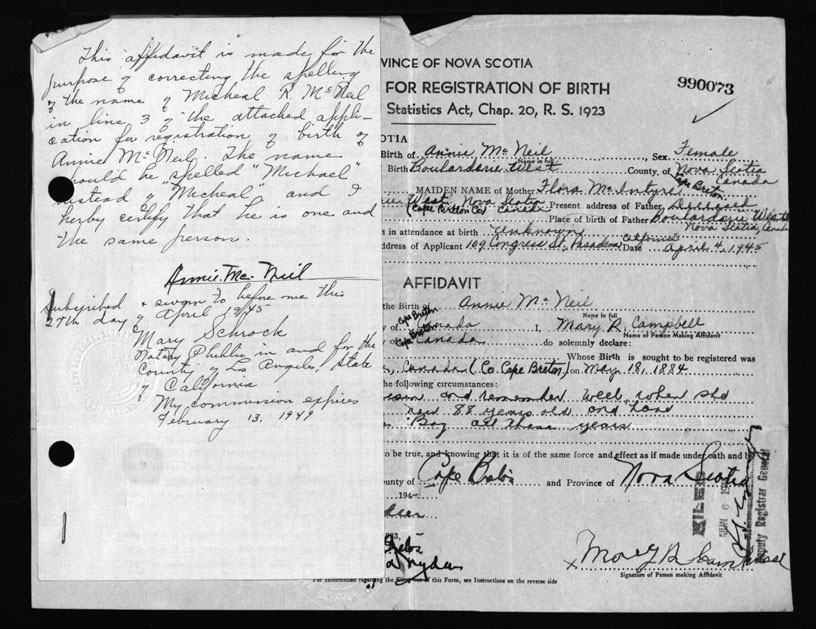 This affidavit is made for the
purpose of correcting the spelling
of the name of Micheal R. McNeil
in line 3 of the attached appli-
cation for registration of birth of
Annie McNeil. The name
should be spelled "Michael"
instead of "Micheal" and I
herby certify that he is one and
the same person.
Annie Mc. Neil
Subscribed & sworn to before me this
27th day of April 1945
Mary Schrock
Notary Phublic in and for the
County of Los Angeles, State
of California
My commission expires
February 13, 1949
VINCE OF NOVA SCOTIA
FOR REGISTRATION OF BIRTH
990073
Statistics Act, Chap. 20, R. S. 1923
OTIA
Birth of Annie McNeil Sex Female
Name in full
Birth Boulardarie West County of, Nova Scotia
Canada
Cape Breton
MAIDEN NAME of Mother Flora McIntyre
West Nova Scotia Present address of Father, Deceased
(Cape Breton Co) Canada Place of birth of Father Boularderie West
Nova Scotia, Canada
n in attendance at birth Unknown
ddress of Applicant 109 Congress St, Pasadena, California Date April 4, 1945
AFFIDAVIT
the Birth of Annie McNeil
Name in full
Cape Breton
y of Canada I, Mary R. Campbell
Name of Person Making Affidavit
Cape Breton
of Canada do solemnly declare:
Whose Birth is sought to be registered was
Canada (Co. Cape Breton) on May 18, 1884
the following circumstances:
and remember well when she
88 years old and have
all these years
to be true, and knowing that it is of the same force and effect as if made under oath and by
ounty of Cape Breton and Province of Nova Scotia
194
FILED
JUN 6 19
Deputy Registrar General
x Mary R Campbell
Signature of Person making Affidavit
For information regarding the of this Form, see Instructions on the reverse side